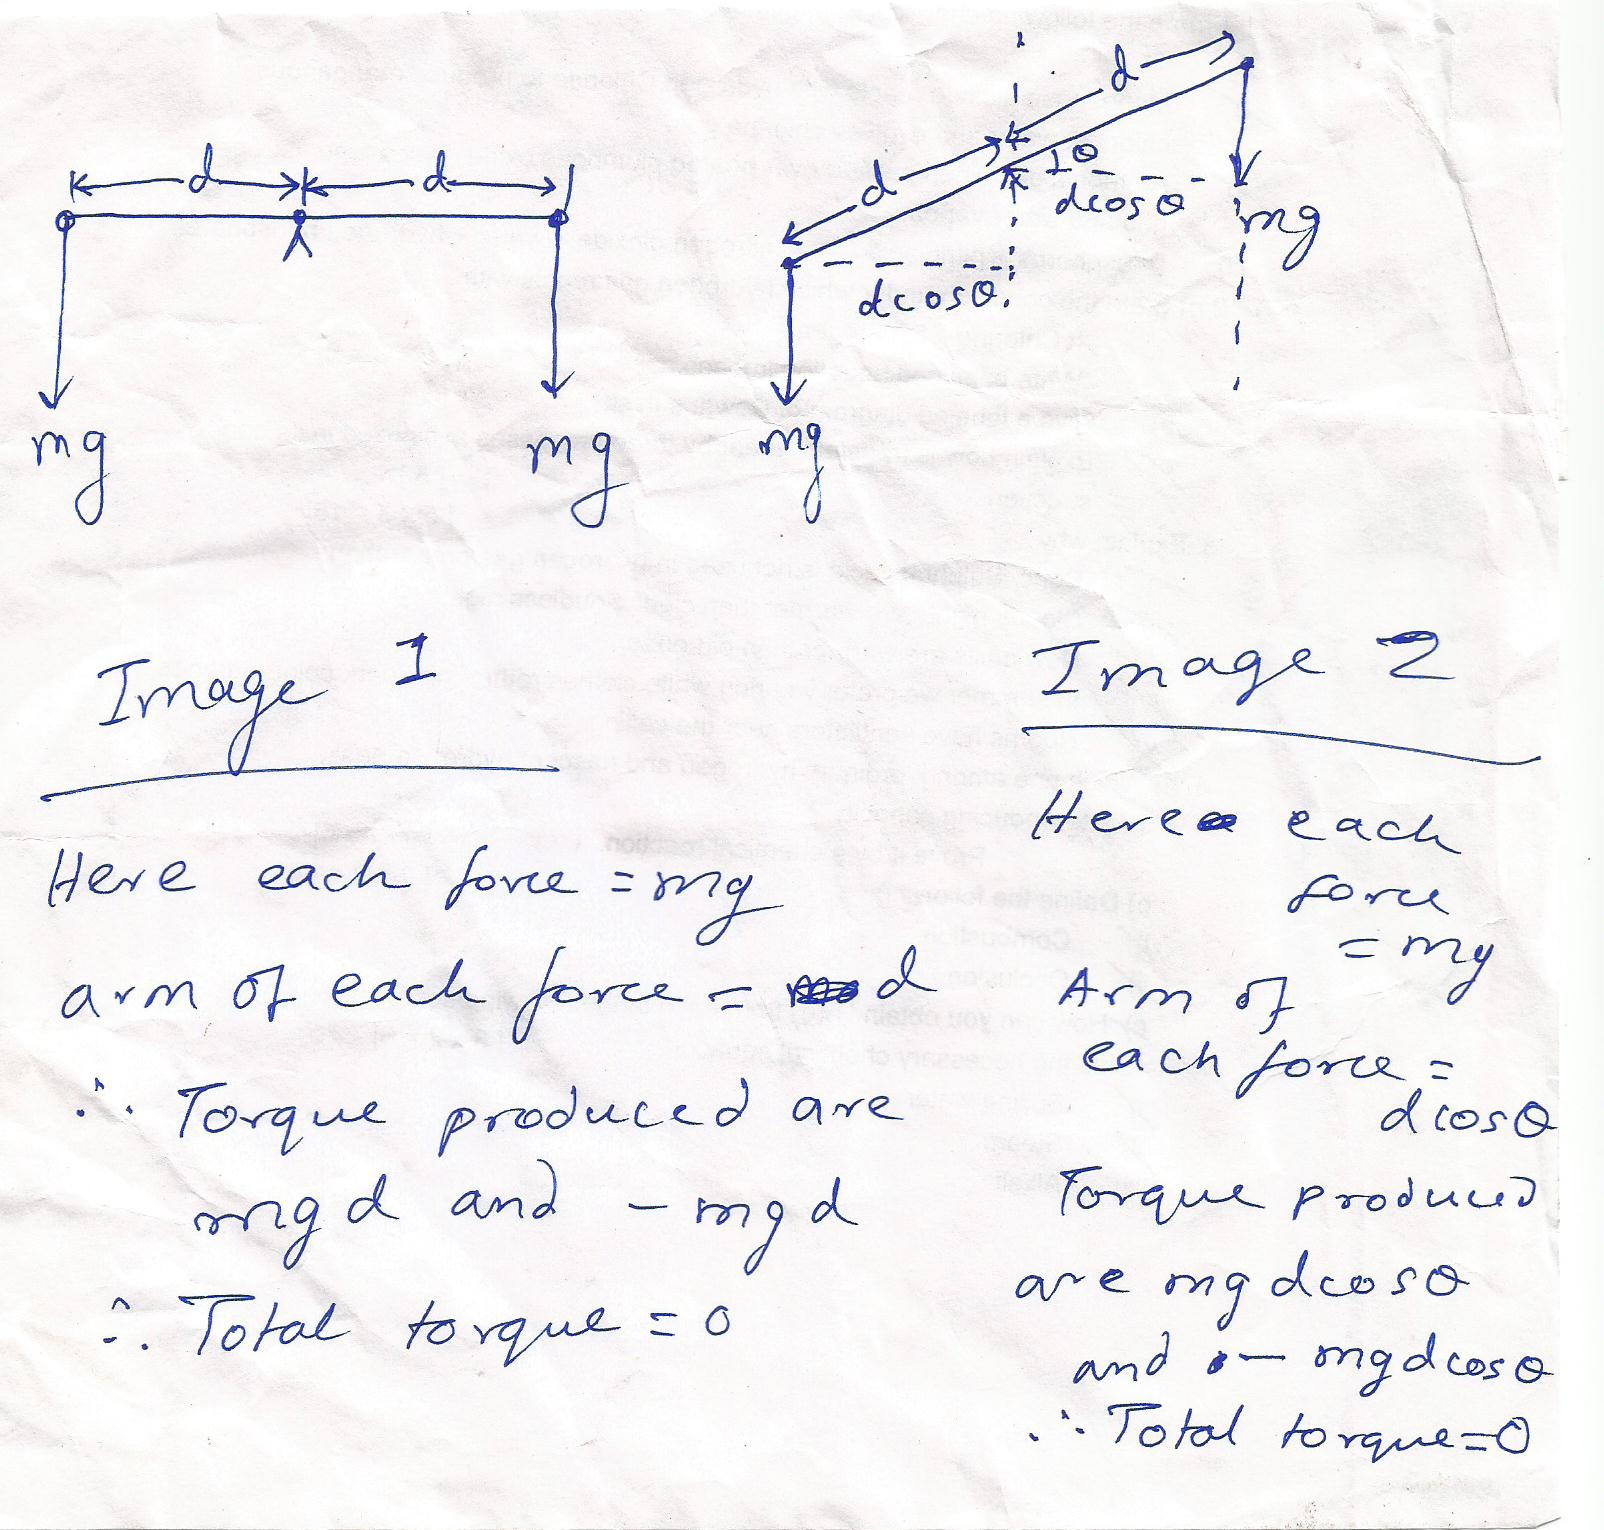 d d
mg mg
d
d
θ
dcosθ
dcosθ
mg
mg
Image 1
Here each force = mg
arm of each force = d
∴ Torque produced are
mgd and - mgd
∴ Total torque = 0
Image 2
Here each
force
= mg
Arm of
each force =
dcosθ
Torque produced
are mgdcosθ
and - mgdcosθ
∴ Total torque = 0